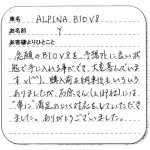 車名 ALPINA B10V8
お名前 Y
お客様よりひとこと
念願のB10V8を予想外に良い状
態で手に入れる事ができ、大変喜んでいま
す\(^^)。購入前は納車後もいろいろ
ありましたが、石原さん
「車」に満足のいく対応をしていただき
ました。ありがとうございました。